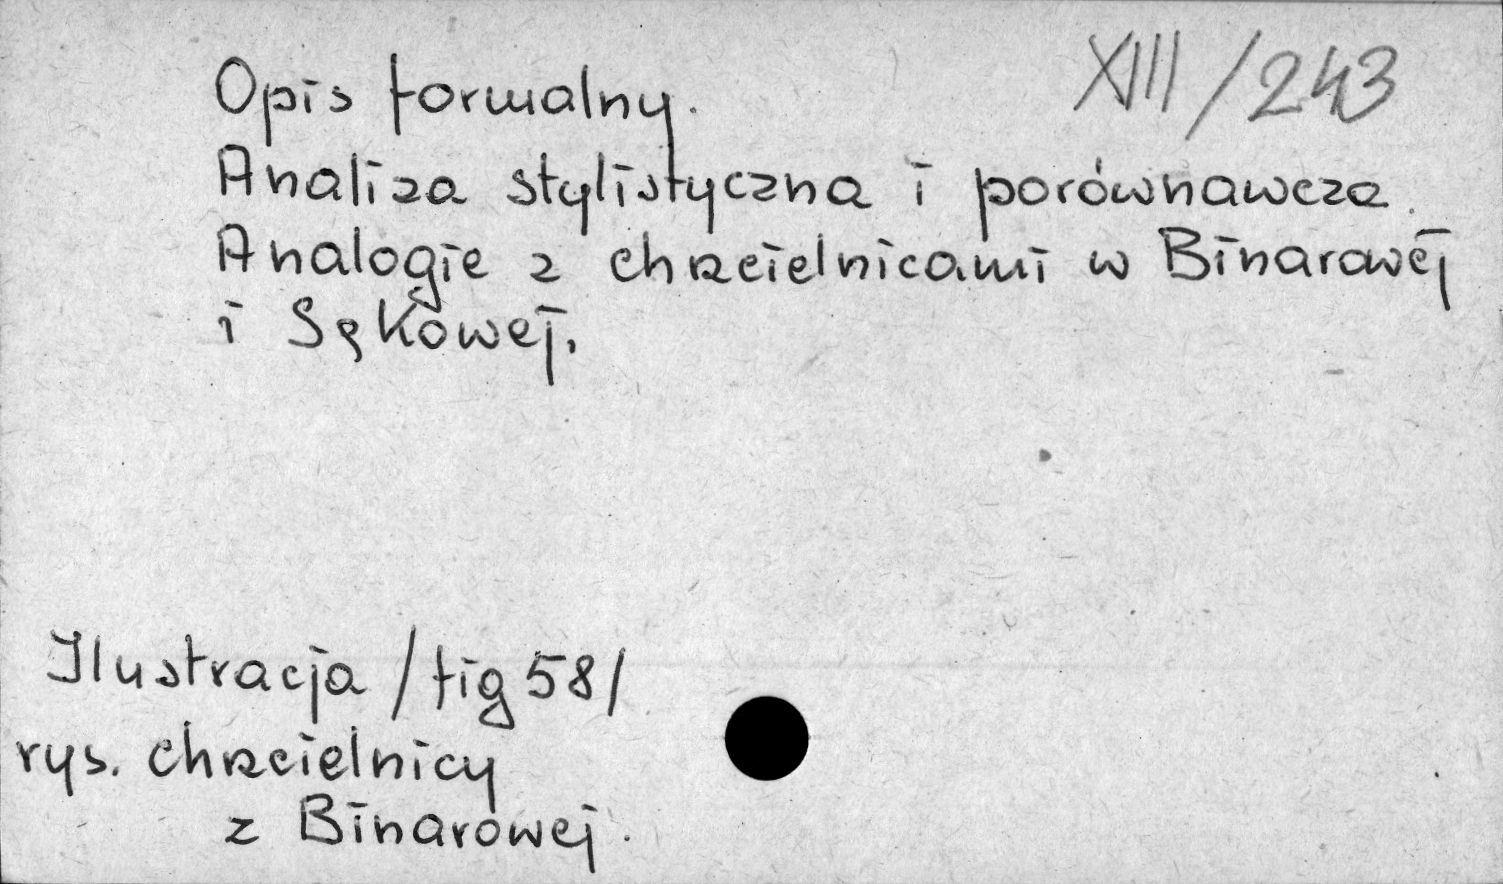 XIII/243
Opis formalny.
Analiza stylistyczna i porównawcza.
Analogie z chrzcielnicami w Binarowej
i Sękowej.
Ilustracja /fig 58/
rys. chrzcielnicy
z Binarowej.